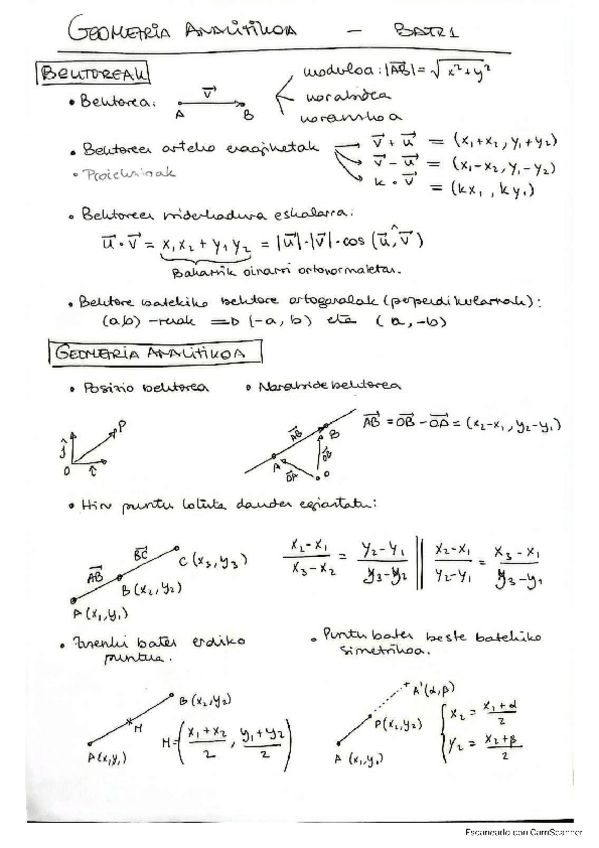 GEOMETRIA ANALITIKOA - BATX 1
BEKTOREAK
• Bektorea: A V⃗ B
moduloa: |AB⃗| = √x²+y²
norabidea
noranzkoa
• Bektoreen arteko eragiketak
v⃗ + u⃗ = (x₁+x₂, y₁+y₂)
v⃗ - u⃗ = (x₁-x₂, y₁-y₂)
k · v⃗ = (kx₁, ky₁)
• Proiekzioak
• Bektoreen biderkadura eskalarra:
u⃗ · v⃗ = x₁x₂ + y₁y₂ = |u⃗|·|v⃗|·cos (u⃗,^v⃗)
Bakarrik oinarri ortonormaletan.
• Bektore batekiko bektore ortogonalak (perpendikularrak):
(a,b) -renak ⇒ (-a, b) eta (a, -b)
GEOMETRIA ANALITIKOA
• Posizio bektorea • Norabide bektorea
ĵ O î P
AB⃗ A B OA⃗ OB⃗ O
AB⃗ = OB⃗ - OA⃗ = (x₂-x₁, y₂-y₁)
• Hiru puntu lotuta dauden egiaztatu:
AB⃗ BC⃗ C (x₃,y₃)
B (x₂,y₂)
A (x₁,y₁)
(x₂-x₁)/(x₃-x₂) = (y₂-y₁)/(y₃-y₂) || (x₂-x₁)/(y₂-y₁) = (x₃-x₁)/(y₃-y₁)
• Zuzenki baten erdiko
puntua.
• Puntu baten beste batekiko
simetrikoa.
B (x₂,y₂)
M
A (x₁,y₁)
M = ((x₁+x₂)/2, (y₁+y₂)/2)
A'(α,β)
P(x₂,y₂)
A (x₁,y₁)
{ x₂ = (x₁+α)/2
y₂ = (x₂+β)/2
Escaneado con CamScanner